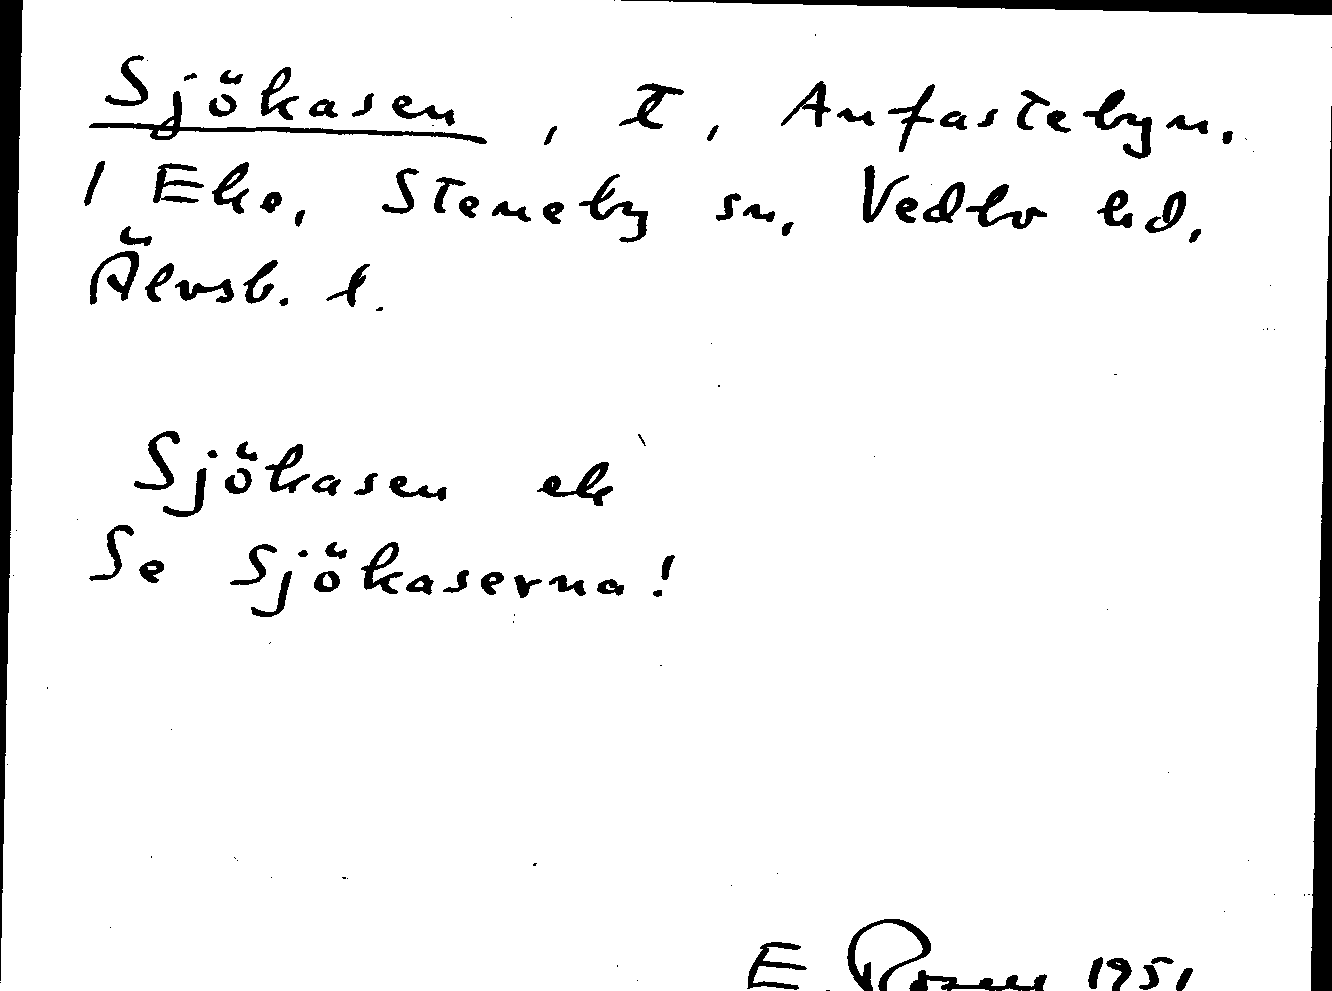 Sjökasen, t, Anfastebyn.
1 Eko, Steneby sn, Vedbo hd,
Älvsb. l.
Sjökasen ek
Se Sjökaserna!
E. Rosén 1951